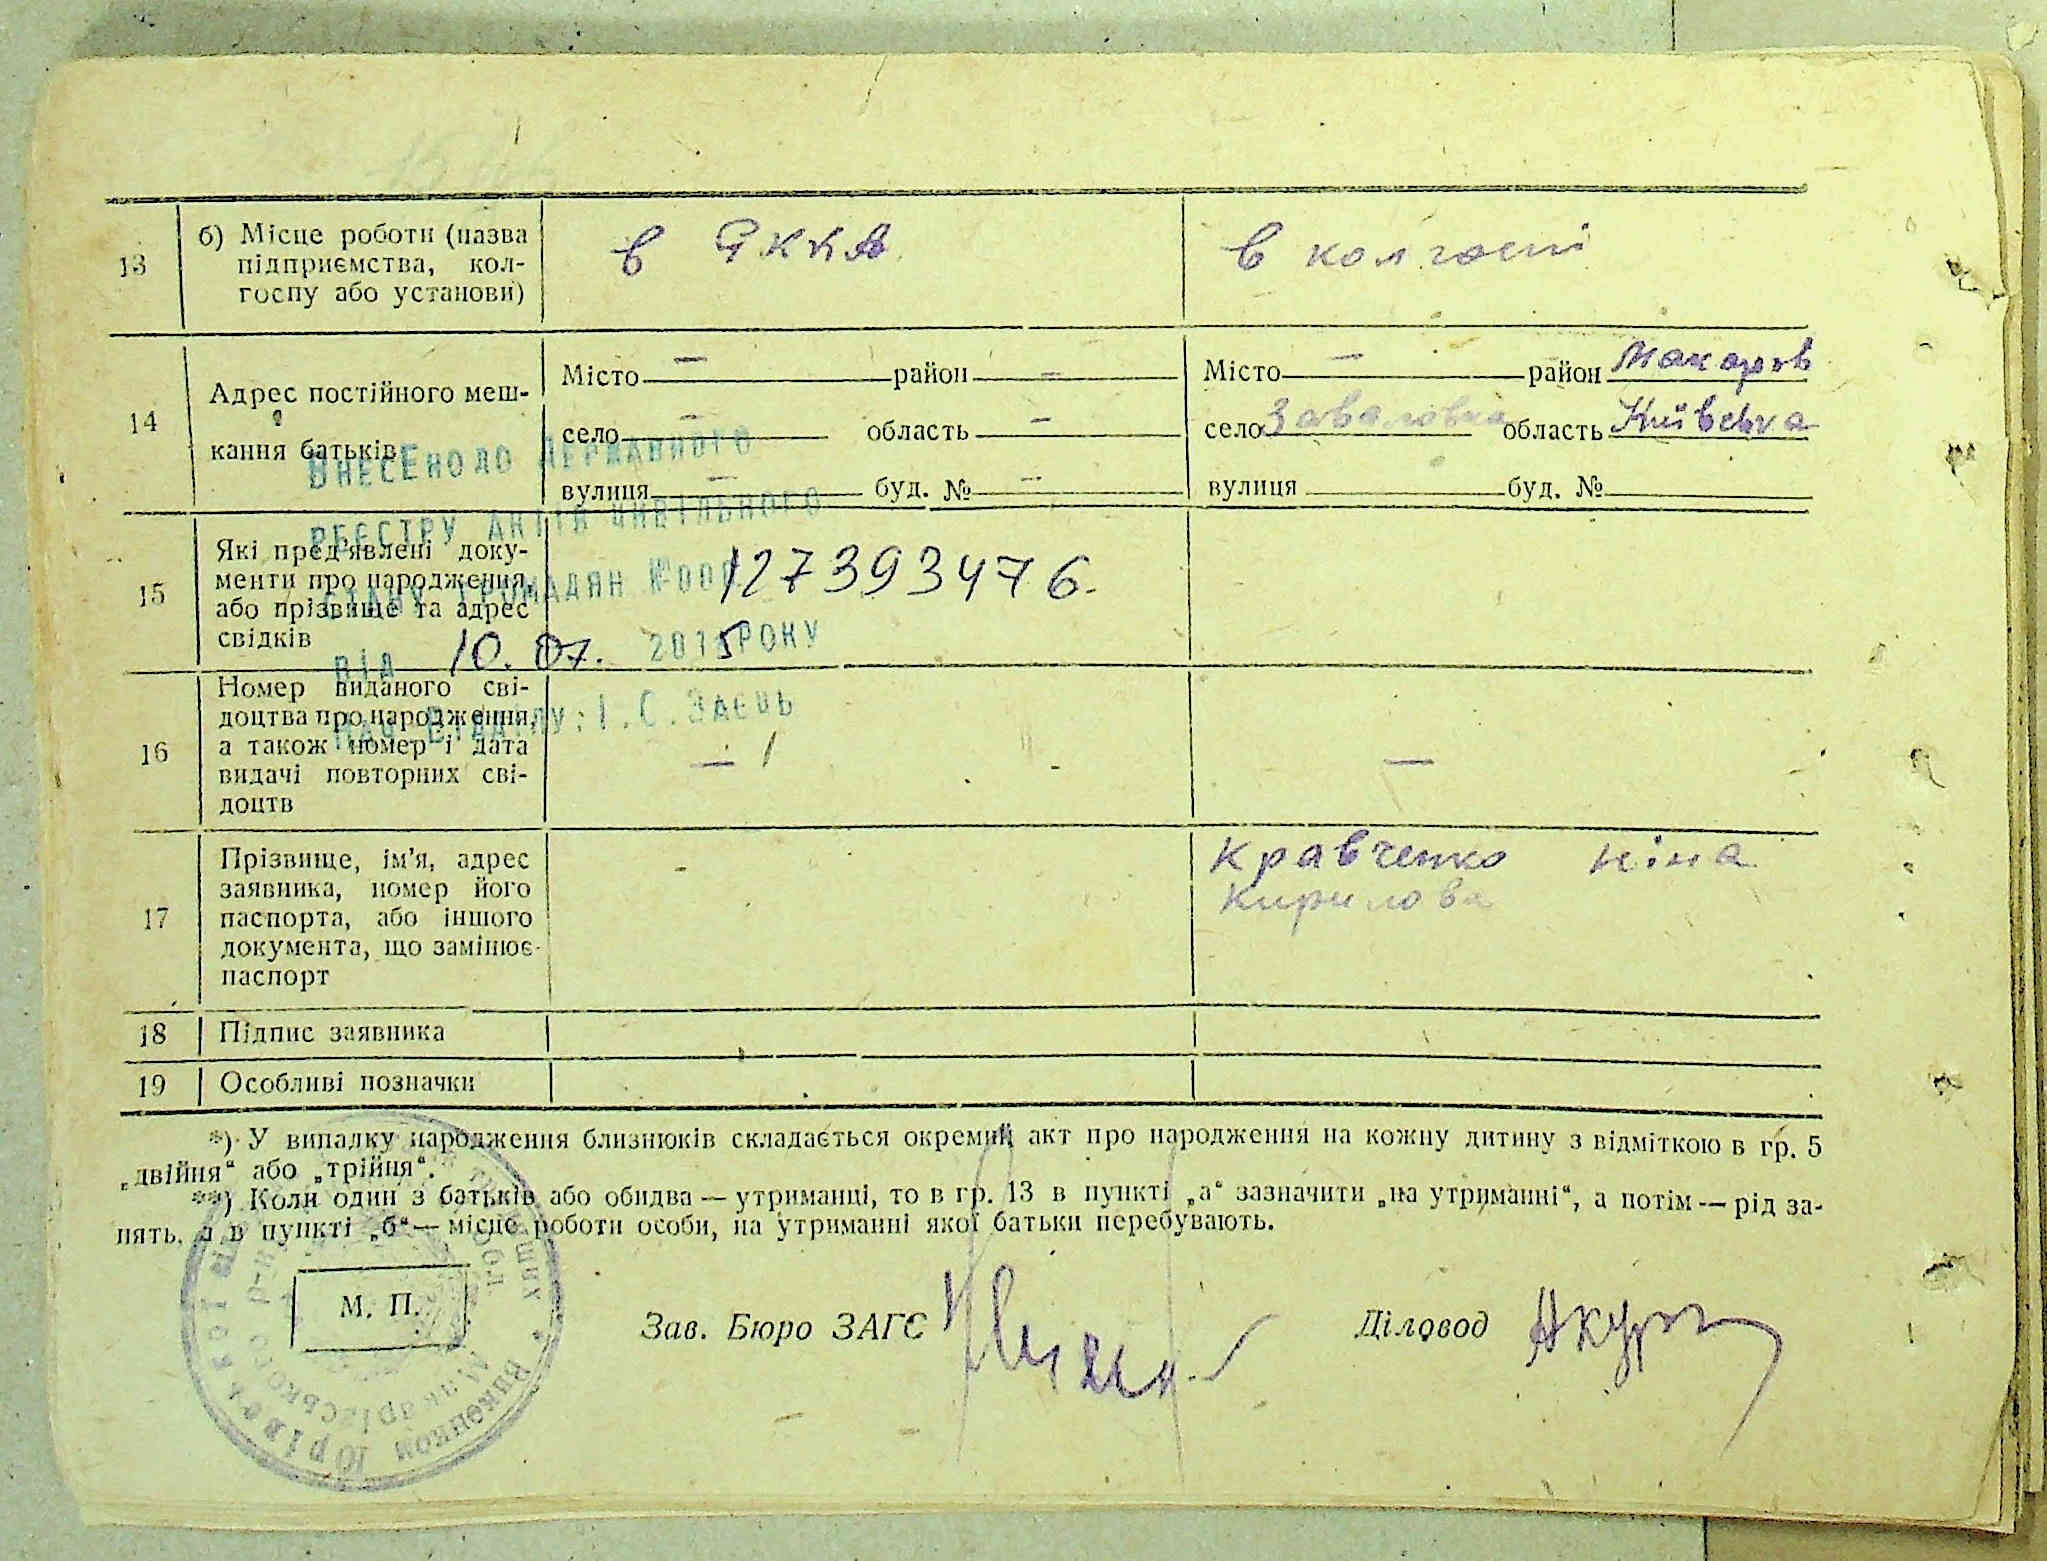 13
б) Місце роботи (назва
підприємства, кол-
госпу або установи)
в РККА
в колгоспі
14
Адрес постійного меш-
кання батьків
Місто — район —
село — область —
вулиця — буд. № —
Місто — район Макарів
село Заваловка область Київська
вулиця буд. №
ВНЕСЕНО ДО ДЕРЖАВНОГО
РЕЄСТРУ АКТІВ ЦИВІЛЬНОГО
СТАНУ ГРОМАДЯН №000 127393476.
ВІД 10.07. 2015 РОКУ
НАЧ ВІДДІЛУ: І.С.ЗАЄЦЬ
15
Які пред'явлені доку-
менти про народження,
або прізвище та адрес
свідків
16
Номер виданого сві-
доцтва про народження,
а також номер і дата
видачі повторних сві-
доцтв
— 1
—
17
Прізвище, ім'я, адрес
заявника, номер його
паспорта, або іншого
документа, що замінює
паспорт
Кравченко Ніна
Кирилова
18
Підпис заявника
19
Особливі позначки
*) У випадку народження близнюків складається окремий акт про народження на кожну дитину з відміткою в гр. 5
„двійня“ або „трійня“.
**) Коли один з батьків або обидва — утриманці, то в гр. 13 в пункті „а“ зазначити „на утриманні“, а потім — рід за-
нять, а в пункті „б“ — місце роботи особи, на утриманні якої батьки перебувають.
М. П.
Зав. Бюро ЗАГС
Діловод
Юрівської
Макарівського р-ну
Виконком